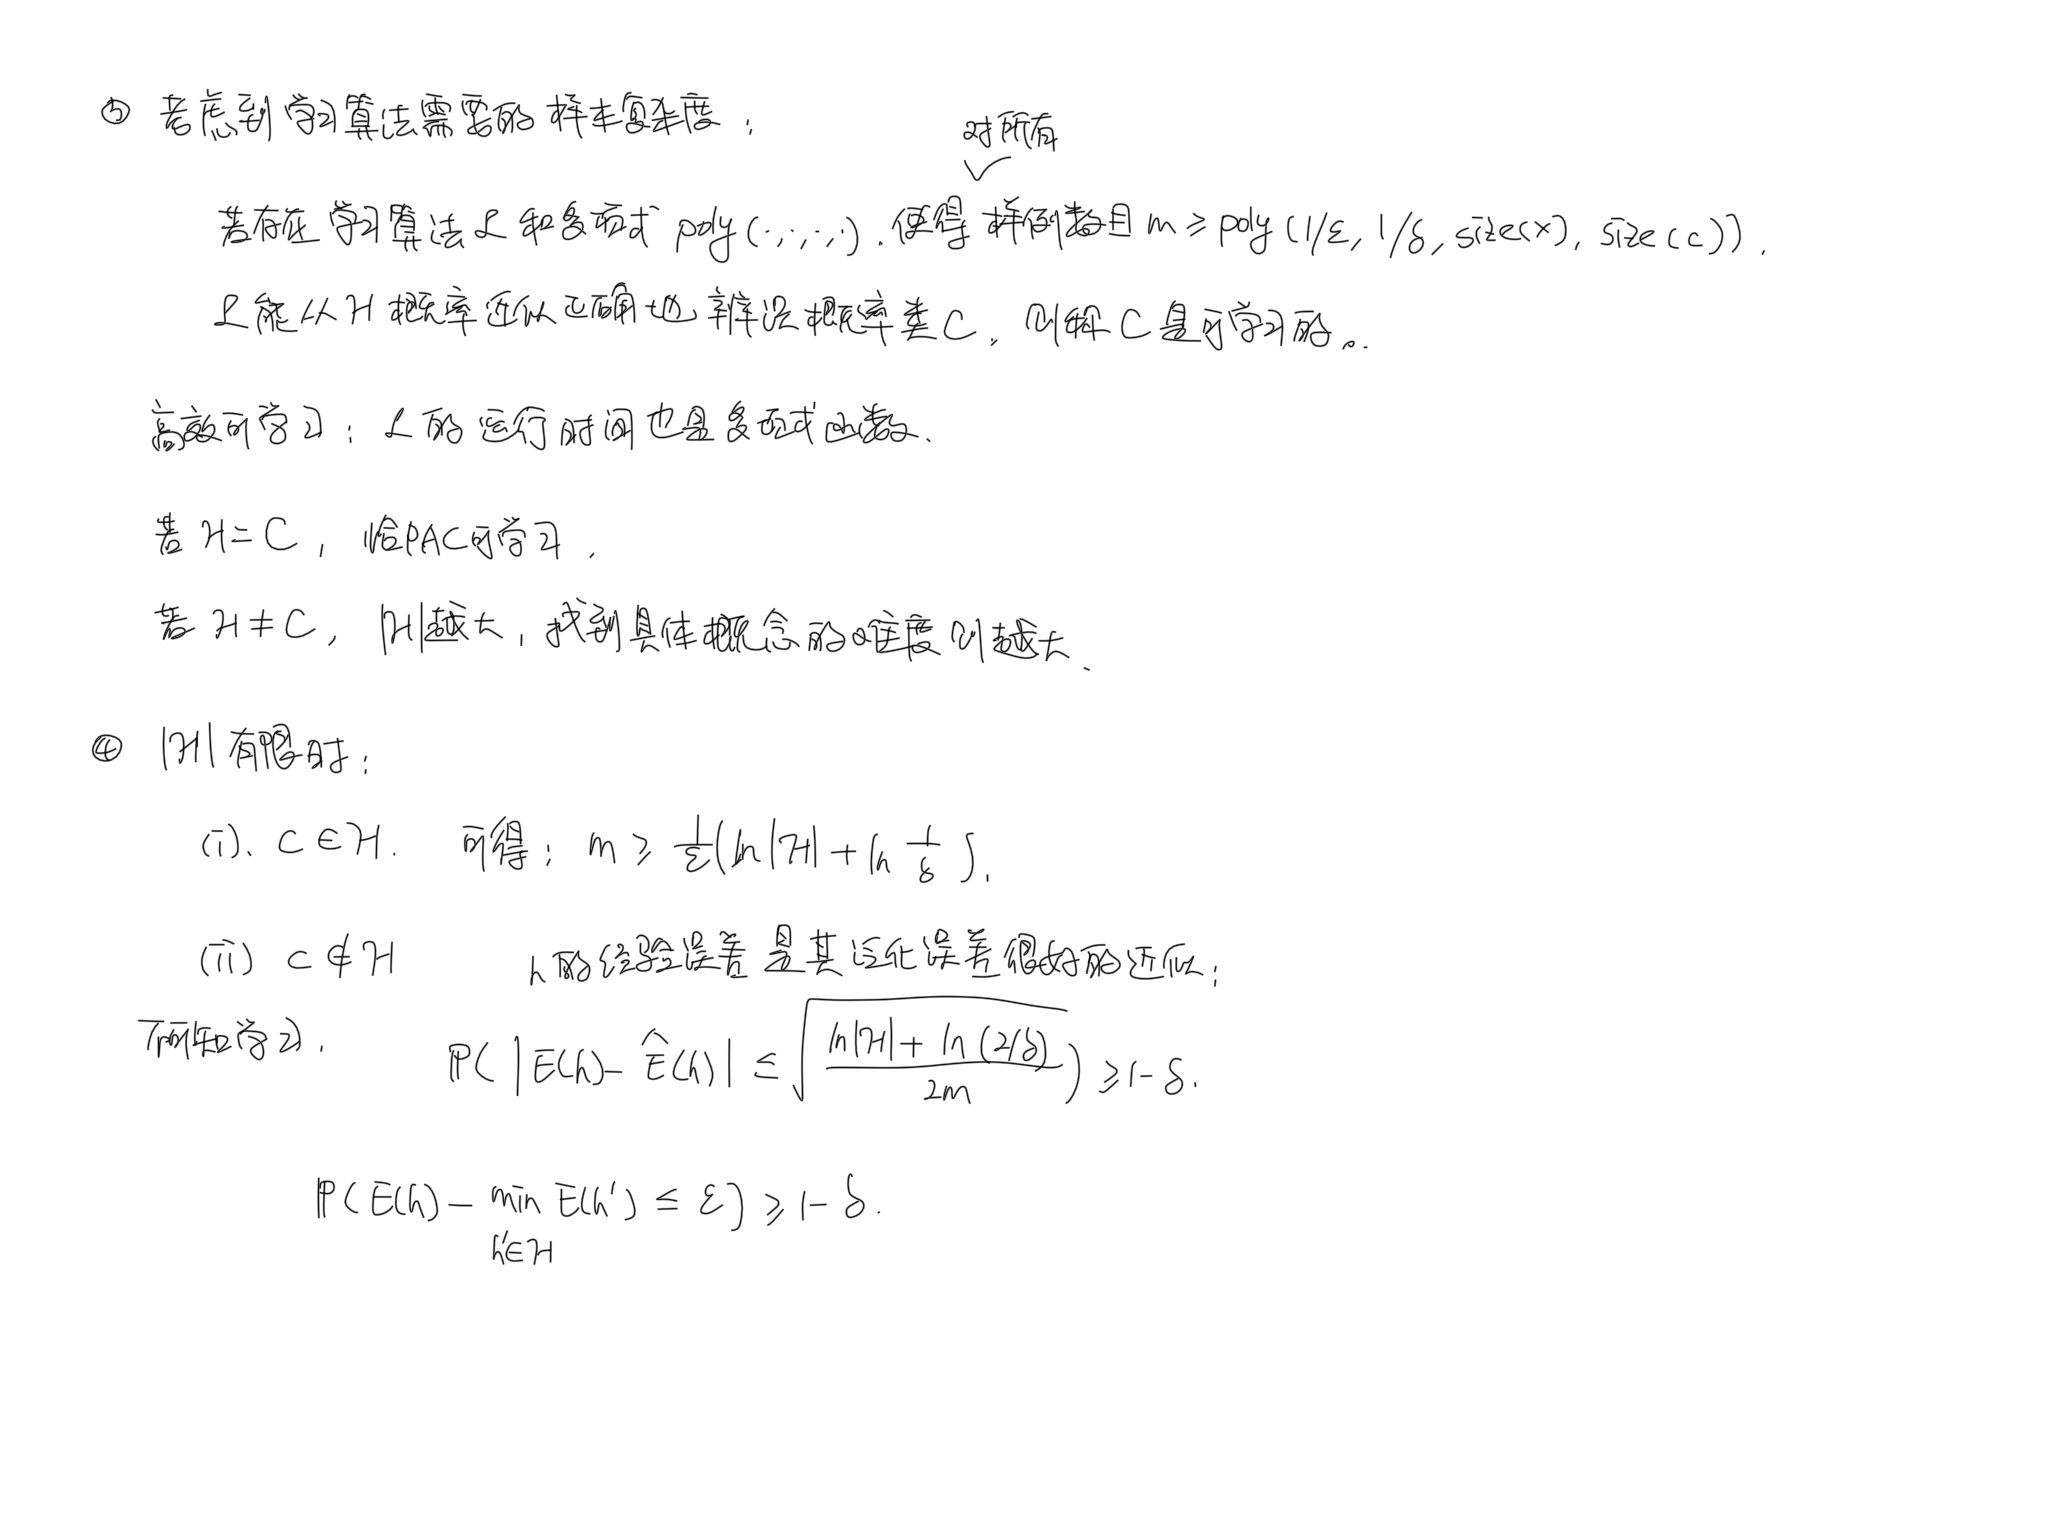 ③ 考虑到学习算法需要的样本复杂度：
对所有
若存在学习算法 L 和多项式 poly(·,·,·,·)，使得样例数目 m ≥ poly(1/ε, 1/δ, size(x), size(c))，
L能从 H 概率近似正确地辨识概率类C，则称C是可学习的。
高效可学习：L的运行时间也是多项式函数.
若 H=C，恰PAC可学习.
若 H≠C，|H|越大，找到具体概念的难度则越大.
④ |H|有限时：
(i). c∈H. 可得：m ≥ 1/ε(ln|H| + ln 1/δ).
(ii) c∉H h的经验误差是其泛化误差很好的近似：
不可知学习. P( |E(h) - Ê(h)| ≤ √((ln|H| + ln(2/δ))/2m) ) ≥ 1-δ.
P(E(h) - min E(h') ≤ ε) ≥ 1-δ.
h'∈H